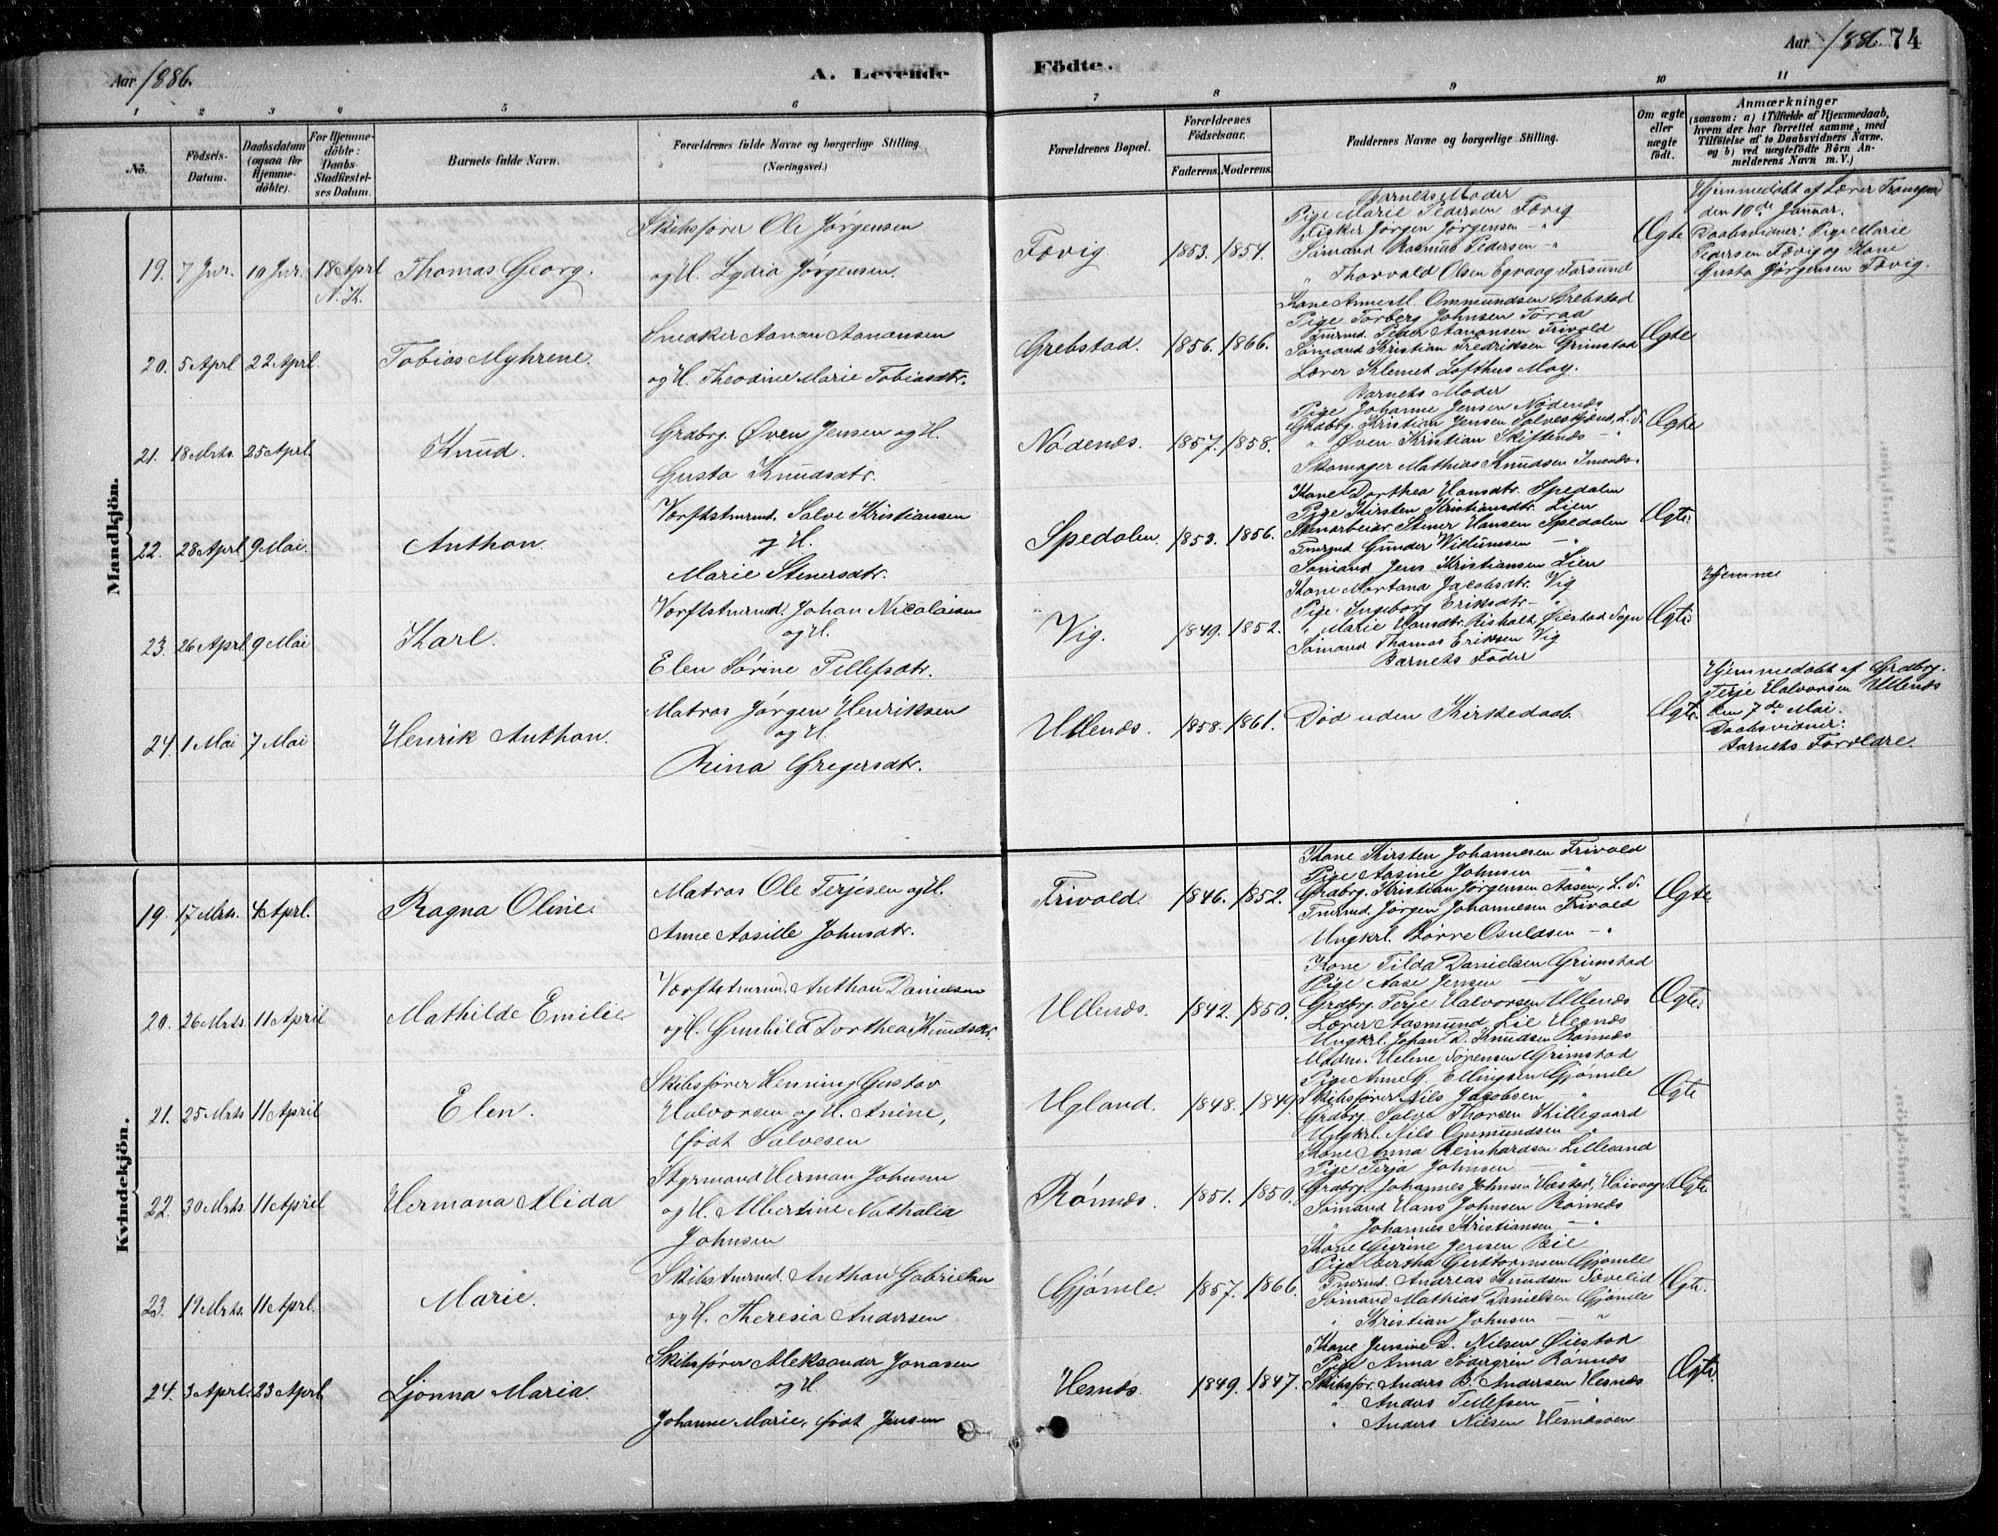 Aar 1886.
A. Levende
Födte.
Aar 1886. 74
1 2 3 4 5 6 7 8 9 10 11
No.
Födsels-Datum.
Daabsdatum (ogsaa for Hjemmedöbte).
For Hjemmedöbte: Daabs-Stadfæstelses Datum.
Barnets fulde Navn.
Forældrenes fulde Navne og borgerlige Stilling. (Næringsvei.)
Forældrenes Bopæl.
Forældrenes Födselsaar.
Faderens. Moderens.
Faddernes Navne og borgerlige Stilling.
Om ægte eller uægte födt.
Anmærkninger (saasom: a) i Tilfælde af Hjemmedaab, hvem der har forrettet samme, med Tilföielse af to Daabsvidners Navne. og b) ved uægtefödte Börn Anmelderens Navn m. V.)
Mandkjön.
19. 7 Jnr. 10 Jnr. 18 April N. K. Thomas Georg.
Skibsfører Ole Jørgensen
og H. Lydia Jørgensen.
Fævig. 1853. 1854.
Barnets Moder
Pige Marie Pedersen Fævig
Fisker Jørgen Jørgensen - "
Sømand Rasmus Pedersen - "
" Thorvald Olsen Egvaag Farsund
Ægte
Hjemmedøbt af Lærer
den 10de Januar.
Daabsvidner: Pige Marie
Pedersen Fævig og Kone
Gusta Jørgensen Fævig.
20. 5 Aprl 22 Aprl Tobias Myhrene.
Snedker Aanon Aanonsen
og H. Theodine Marie Tobiasdtr.
Grebstad. 1856. 1866.
Kone Anne M. Ommundsen Grebstad
Pige Torberg Johnsen Torad
Tmrmd. Peder Aanonsen Trivold
Sømand Kristian Fredriksen Grimstad
Lærer Klemet Lofthus Moy.
Ægte
21. 18 Mrts. 25 Aprl. Knud.
Grdbrg. Øven Jensen og H.
Gusta Knudsdtr.
Nødenæs. 1857. 1858.
Barnets Moder
Pige Johanne Jensen Nødenæs
Grdbrg. Kristian Jensen L. S.
" Øven Kristian Skiftenæs - "
Skomager Mathias Knudsen Imenæs.
Ægte
22. 28 Aprl 9 Mai. Anthon.
Værftstmrmd. Salve Kristiansen
og H.
Marie Stenersdtr.
Spedalen. 1853. 1856.
Kone Dorthea Hansdtr. Spedalen
Pige Kirsten Kristiansdtr. Lien
Stenarbeidr. Stener Hansen Spedalen
Tmrmd. Gunder Villumsen - "
Sømand Jens Kristiansen Lien
Ægte
23. 26 Aprl 9 Mai Karl.
Værftstmrmd. Johan Nicolaisen
og H.
Elen Sørine Tellefsdtr.
Vig. 1849. 1852.
Kone Martana Jacobsdtr. Vig
Pige Ingeborg Eriksdtr. - "
" Marie Hansdtr. Risholt, Øiestad Sogn
Sømand Thomas Eriksen Vig
Barnets Fader
Ægte
Hjemme
24. 1 Mai 7 Mai Henrik Anthon.
Matros Jørgen Henriksen
og H.
Rina Gregersdtr.
Ullenæs. 1858. 1861.
Død uden Kirkedaab.
Ægte
Hjemmedøbt af Grdbrg.
Terje Halvorsen Ullenæs
den 7de Mai.
Daabsvidner:
Barnets Forældre.
Kvindekjön.
19. 17 Mrts. 4 Aprl. Ragna Oline.
Matros Ole Terjesen og H.
Anne Aasille Johnsdtr.
Trivold. 1846. 1852.
Kone Kirsten Johannesen Trivold
Pige Aasine Johnsen - "
Grdbrg. Kristian Jørgensen Aasen, L. S.
Tmrmd. Jørgen Johannesen Trivold
Ungkrl. Børre Osuldsen - "
Ægte
20. 26 Mrts. 11 April Mathilde Emilie
Værftstmrmd. Anthon Danielsen
og H. Gunhild Dorthea Knudsdtr.
Ullenæs. 1842. 1850.
Kone Tilda Danielsen Grimstad
Pige Aase Jensen "
Grdbrg. Terje Halvorsen Ullenæs
Lærer Aasmund Lie Hesnæs
Ungkrl. Johan D. Knudsen Rønnæs
Ægte.
21. 25 Mrts 11 April Elen.
Skibsfører Henning Gustav
Halvorsen og H. Anine,
født Salvesen
Ugland. 1848. 1849.
Mdm. Helene Sørensen Grimstad
Pige Anne G. Ellingsen Gjømle
Skibsfører Nils Jacobsen "
Grdbrg. Salve Thorsen Killegaard
Ungkrl. Nils Ommundsen "
Ægte
22. 30 Mrts. 11 April Hermana Alida
Styrmand Herman Johnsen
og H. Albertine Nathalia
Johnsen
Rønnæs. 1851. 1850.
Kone Anna Reinhardsen Lillesand
Pige Terja Johnsen - "
Grdbrg. Johannes Johnsen Hæstad, Høivaag
Sømand Hans Johnsen Rønnæs
" Johannes Kristiansen - "
Ægte
23. 19 Mrts. 11 Aprl. Marie.
Skibstmrmd. Anthon Gabrielsen
og H. Theresia Andersen
Gjømle. 1857. 1866.
Kone Gurine Jensen Bie
Pige Bertha Guttormsen Gjømle
Tmrmd. Andreas Knudsen Sævelid
Sømand Mathias Danielsen Gjømle
" Kristian Johnsen - "
Ægte.
24. 3 Aprl. 23 Aprl Ljonna Maria.
Skibsfører Aleksander Jonasen
og H
Johanne Marie, født Jensen
Hesnæs. 1849. 1847.
Kone Jensine D. Nilsen Øiestad
Pige Anna Södergrén Rønnæs
Skibsfør. Anders B. Andersen Hesnæs
" Anders Tellefsen "
" Anders Nilsen Hesnæsøen
Ægte.